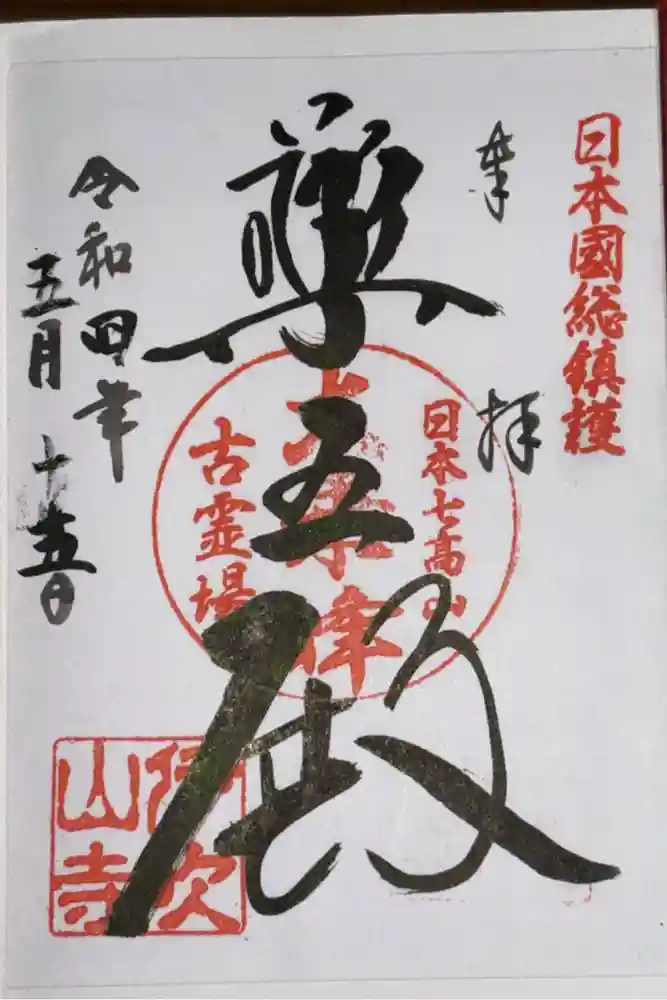 日本國総鎮護
奉拝
日本七高山
薬
殿
古霊場
令和四年
五月十五日
伊吹
山寺